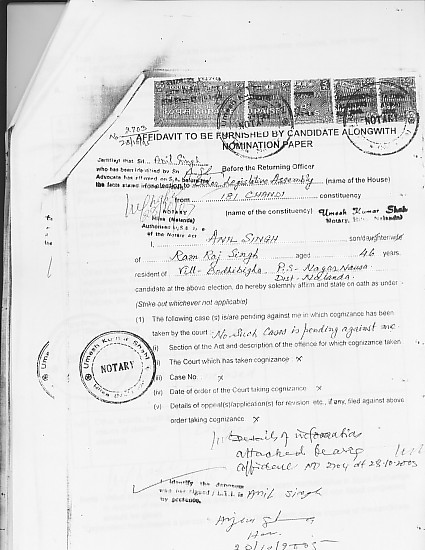 No 2703
28/10/05
AFFIDAVIT TO BE FURNISHED BY CANDIDATE ALONGWITH
NOMINATION PAPER
Certified that Sri Anil Singh
who has been identified by Sri
Before the Returning Officer
Advocate has affirmed on S.A. before me
the facts stated
election to Legislative Assembly (name of the House)
from 171 CHANDI constituency
(name of the constituency) Umesh Kumar Shah
Notary, Nalanda)
NOTARY
Hilsa (Nalanda)
Authorised u.s.
of the Notaries Act
I, ANIL SINGH son/daughter/wife
of Ram Raj Singh aged 46 years,
resident of Vill- Bodhibigha, P.S- Nagar Nausa
Dist. Nalanda.
candidate at the above election, do hereby solemnly affirm and state on oath as under -
(Strike out whichever not applicable)
(1) The following case (s) is/are pending against me in which cognizance has been
taken by the court No Such Cases is pending against me
(i) Section of the Act and description of the offence for which cognizance taken
(ii) The Court which has taken cognizance x
(iii) Case No x
(iv) Date of order of the Court taking cognizance x
(v) Details of appeal(s)/application(s) for revision etc., if any, filed against above
order taking cognizance x
Umesh Kumar Shah
NOTARY
Details of information
attached bearing
affidavit No 2704 dt 28-10-2005
I identify the deponent
who has signed / L.T.I. is Anil Singh
my presence.
28/10/2005